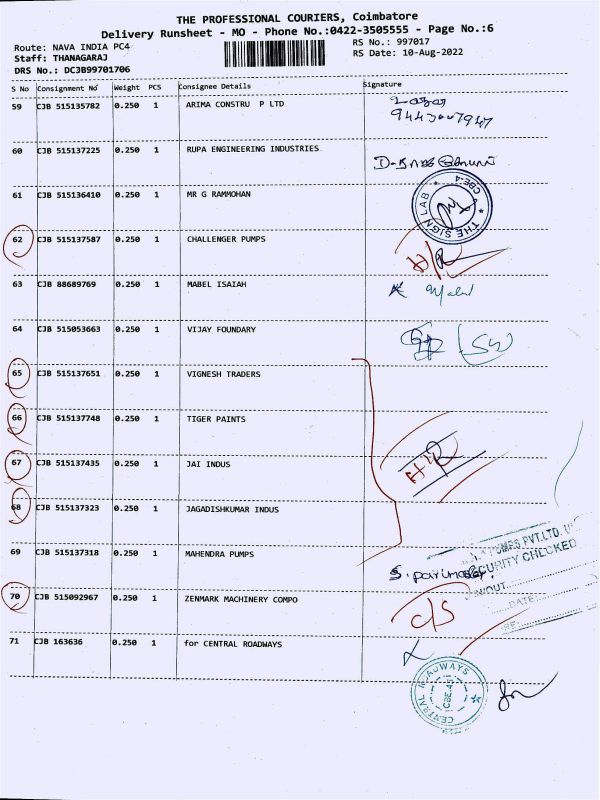 THE PROFESSIONAL COURIERS, Coimbatore
Delivery Runsheet - MO - Phone No.:0422-3505555 - Page No.:6
Route: NAVA INDIA PC4 RS No.: 997017
Staff: THANAGARAJ RS Date: 10-Aug-2022
DRS No.: DCJB99701706
S No Consignment No Weight PCS Consignee Details Signature
59 CJB 515135782 0.250 1 ARIMA CONSTRU P LTD
60 CJB 515137225 0.250 1 RUPA ENGINEERING INDUSTRIES
61 CJB 515136410 0.250 1 MR G RAMMOHAN
THE SIGN LAB CBE-4
62 CJB 515137587 0.250 1 CHALLENGER PUMPS
63 CJB 88689769 0.250 1 MABEL ISAIAH
64 CJB 515053663 0.250 1 VIJAY FOUNDARY
65 CJB 515137651 0.250 1 VIGNESH TRADERS
66 CJB 515137748 0.250 1 TIGER PAINTS
67 CJB 515137435 0.250 1 JAI INDUS
68 CJB 515137323 0.250 1 JAGADISHKUMAR INDUS
69 CJB 515137318 0.250 1 MAHENDRA PUMPS
PVT.LTD.
CHECKED
DATE
70 CJB 515092967 0.250 1 ZENMARK MACHINERY COMPO
c/s
71 CJB 163636 0.250 1 for CENTRAL ROADWAYS
CENTRAL ROADWAYS